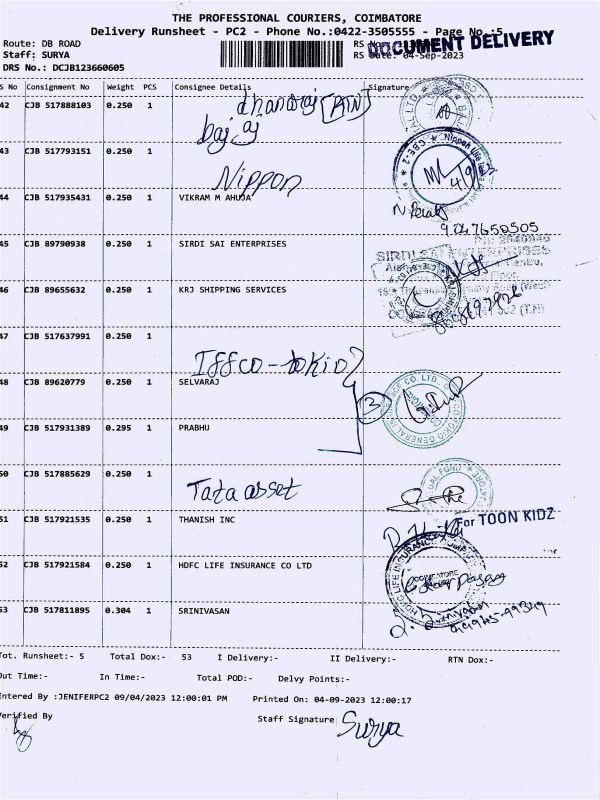 THE PROFESSIONAL COURIERS, COIMBATORE
Delivery Runsheet - PC2 - Phone No.:0422-3505555 - Page No.:5
Route: DB ROAD
DOCUMENT DELIVERY
Staff: SURYA
RS Date: 04-Sep-2023
DRS No.: DCJB123660605
S No Consignment No Weight PCS Consignee Details Signature
42 CJB 517888103 0.250 1 dhanaraj [RTN]
bajaj
43 CJB 517793151 0.250 1
Nippon
4/9/23
44 CJB 517935431 0.250 1 VIKRAM M AHUJA
9047650505
45 CJB 89790938 0.250 1 SIRDI SAI ENTERPRISES
46 CJB 89655632 0.250 1 KRJ SHIPPING SERVICES
47 CJB 517637991 0.250 1
Iffco-tokio
48 CJB 89620779 0.250 1 SELVARAJ
3
49 CJB 517931389 0.295 1 PRABHU
50 CJB 517885629 0.250 1
Tata asset
51 CJB 517921535 0.250 1 THANISH INC
For TOON KIDZ
52 CJB 517921584 0.250 1 HDFC LIFE INSURANCE CO LTD
HDFC LIFE INSURANCE
COIMBATORE
53 CJB 517811895 0.304 1 SRINIVASAN
Tot. Runsheet:- 5 Total Dox:- 53 I Delivery:- II Delivery:- RTN Dox:-
Out Time:- In Time:- Total POD:- Delvy Points:-
Entered By :JENIFERPC2 09/04/2023 12:00:01 PM Printed On: 04-09-2023 12:00:17
Verified By
Staff Signature Surya